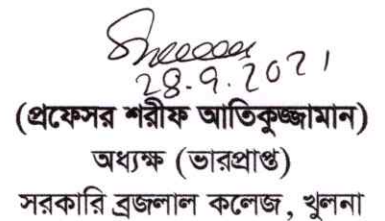 28.9.2021
(প্রফেসর শরীফ আতিকুজ্জামান)
অধ্যক্ষ (ভারপ্রাপ্ত)
সরকারি ব্রজলাল কলেজ, খুলনা